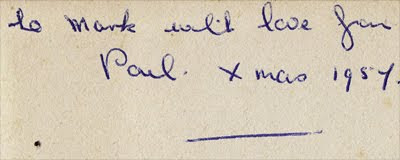 to Mark with love from
Paul. Xmas 1957.